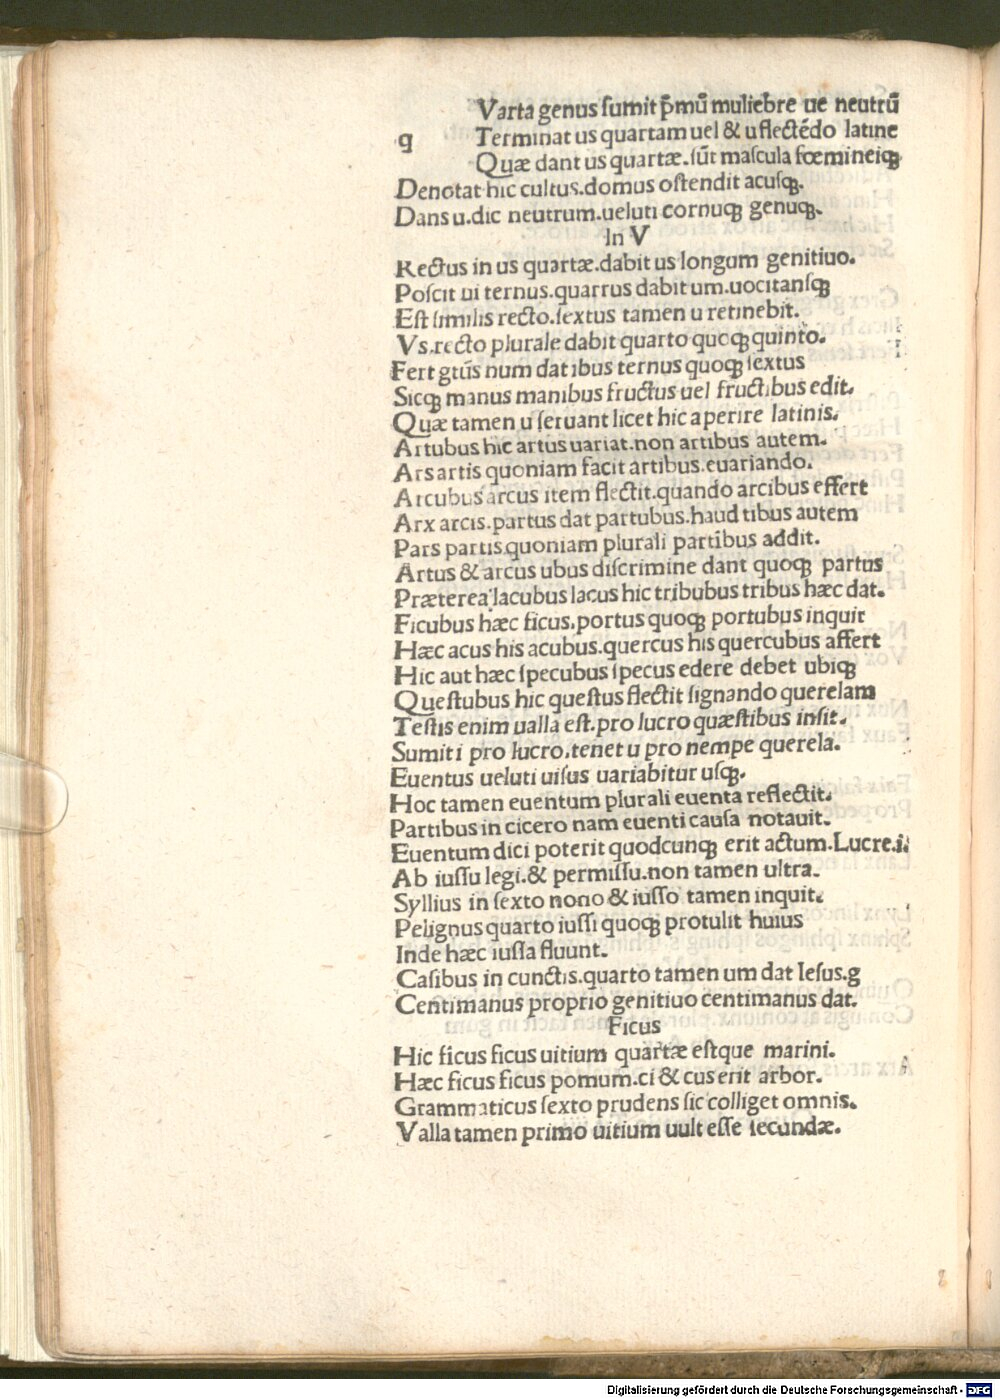 Varta genus ſumit p̄mū muliebre ue neutrū
q Terminat us quartam uel & u flectēdo latine
Quæ dant us quartæ.ſūt maſcula fœmineiqꝫ
Denotat hic cultus.domus oſtendit acuſqꝫ.
Dans u.dic neutrum.ueluti cornuqꝫ genuqꝫ.
In V
Rectus in us quartæ.dabit us longum genitiuo.
Poſcit ui ternus.quarrus dabit um.uocitanſqꝫ
Eſt ſimilis recto.ſextus tamen u retinebit.
Vs.recto plurale dabit quarto quoqꝫ quinto.
Fert gtūs num dat ibus ternus quoqꝫ ſextus
Sicqꝫ manus manibus fructus uel fructibus edit.
Quæ tamen u ſeruant licet hic aperire latinis.
Artubus hic artus uariat.non artibus autem.
Ars artis quoniam facit artibus.euariando.
Arcubus arcus item flectit.quando arcibus effert
Arx arcis.partus dat partubus.haud tibus autem
Pars partis.quoniam plurali partibus addit.
Artus & arcus ubus diſcrimine dant quoqꝫ partus
Præterea lacubus lacus hic tribubus tribus hæc dat.
Ficubus hæc ficus.portus quoqꝫ portubus inquit
Hæc acus his acubus.quercus his quercubus affert
Hic aut hæc ſpecubus ſpecus edere debet ubiqꝫ
Queſtubus hic queſtus flectit ſignando querelam
Teſtis enim ualla eſt.pro lucro quæſtibus inſit.
Sumit i pro lucro.tenet u pro nempe querela.
Euentus ueluti uiſus uariabitur uſqꝫ.
Hoc tamen euentum plurali euenta reflectit.
Partibus in cicero nam euenti cauſa notauit.
Euentum dici poterit quodcunqꝫ erit actum.Lucre.i.
Ab iuſſu legi.& permiſſu.non tamen ultra.
Syllius in ſexto nono & iuſſo tamen inquit.
Pelignus quarto iuſſi quoqꝫ protulit huius
Inde hæc iuſſa fluunt.
Caſibus in cunctis.quarto tamen um dat Ieſus.g
Centimanus proprio genitiuo centimanus dat.
Ficus
Hic ficus ficus uitium quartæ eſtque marini.
Hæc ficus ficus pomum.ci & cus erit arbor.
Grammaticus ſexto prudens ſic colliget omnis.
Valla tamen primo uitium uult eſſe ſecundæ.
Digitalisierung gefördert durch die Deutsche Forschungsgemeinschaft - DFG